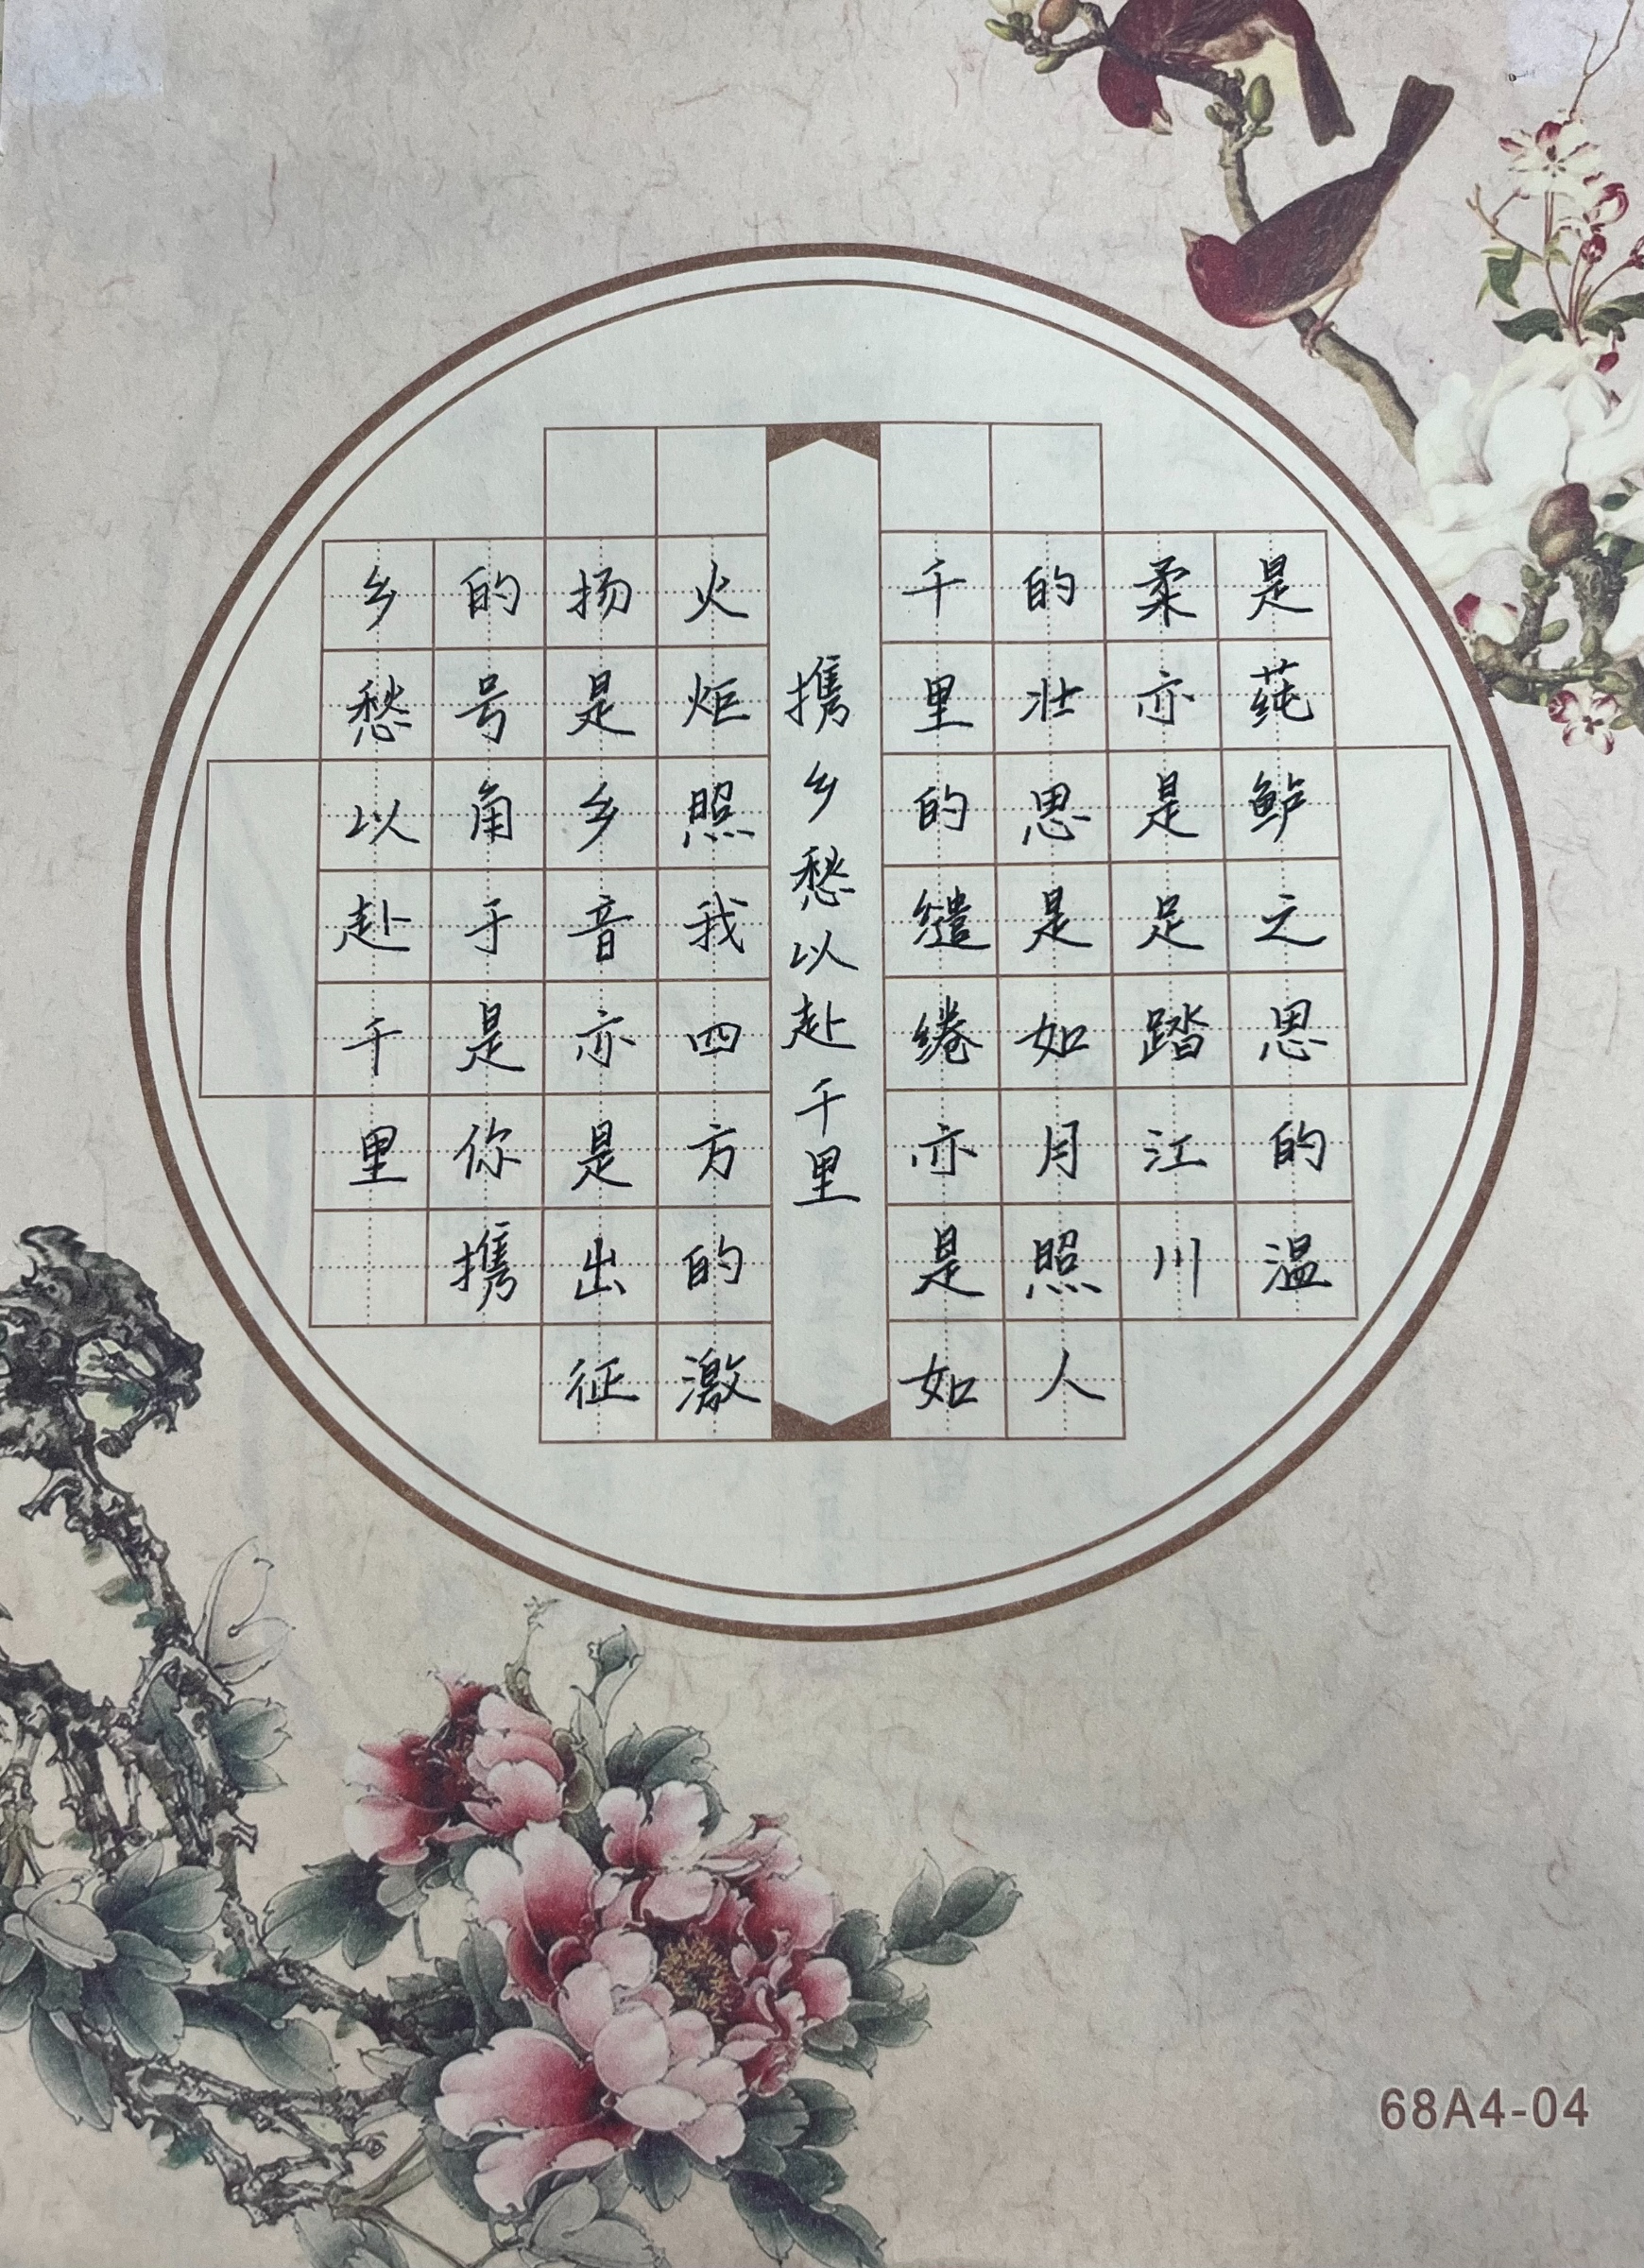 是莼鲈之思的温
柔亦是足踏江川
的壮思是如月照人
千里的缱绻亦是如
携乡愁以赴千里
火炬照我四方的激
扬是乡音亦是出征
的号角于是你携
乡愁以赴千里
68A4-04